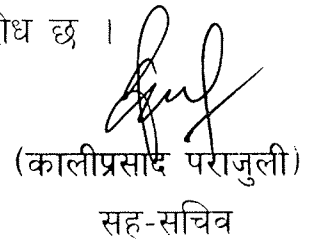 ोध छ ।
(कालीप्रसाद पराजुली)
सह-सचिव